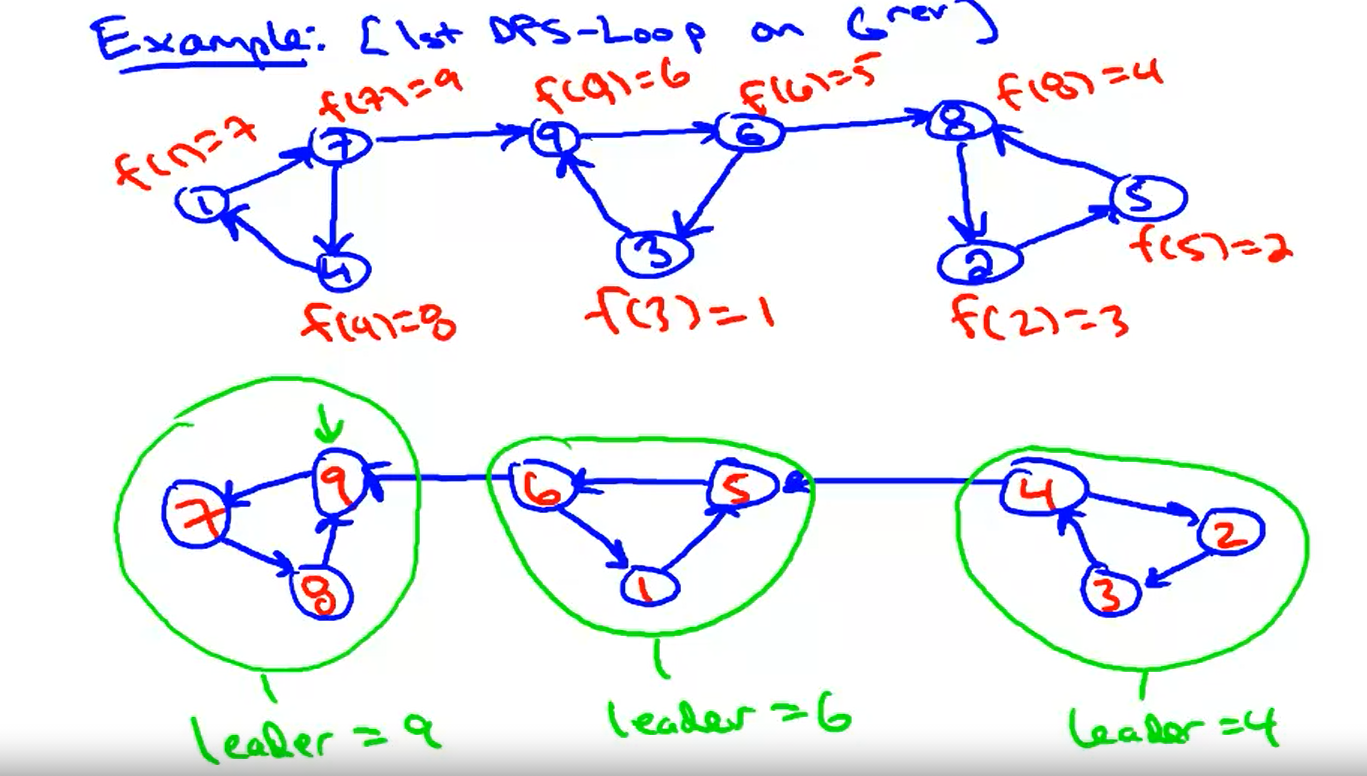 Example: [1st DFS-Loop on G^rev]
f(7)=9 f(9)=6 f(6)=5 f(8)=4
f(1)=7
7 9 6 8
1 5
3
4 2
f(5)=2
f(4)=8 f(3)=1 f(2)=3
9 6 5 4
7 2
8 1 3
leader = 9 leader = 6 leader = 4